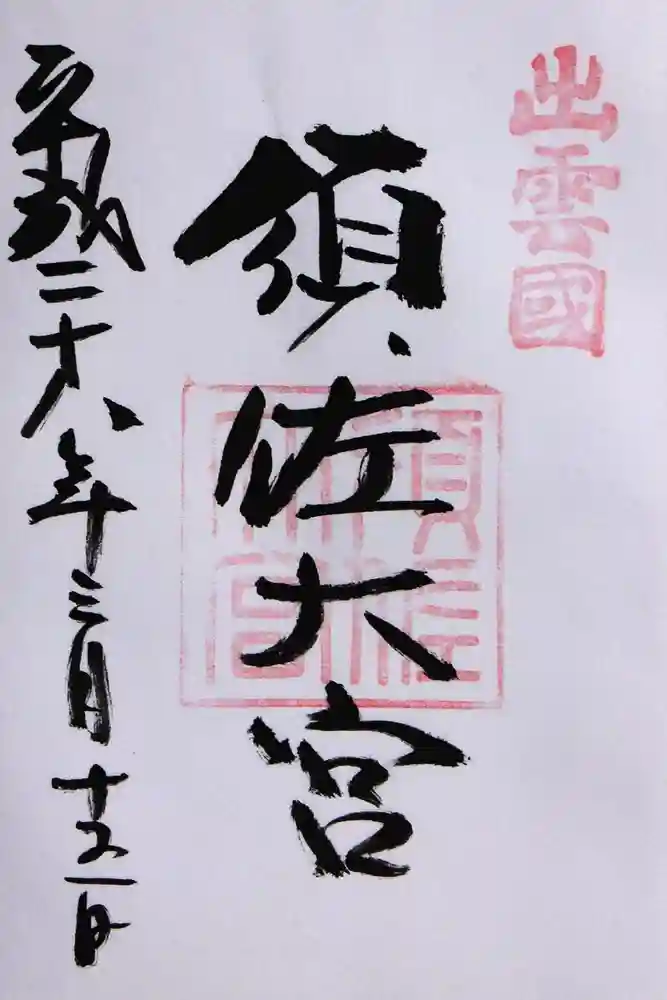 出雲國
須佐大宮
須佐大宮
平成二十八年三月十五日